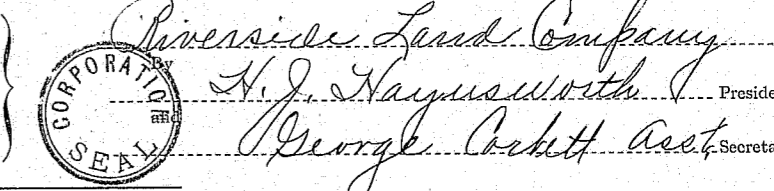 Riverside Land Company
By H. J. Haynsworth Preside
and George Corbett Asst. Secreta
CORPORATIO
SEAL